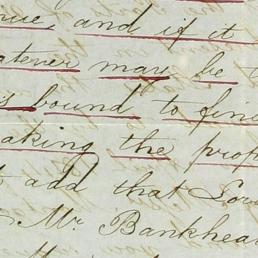 and if it
may be
bound to fin
aking the prop
add that Lou
Mr Bankhea